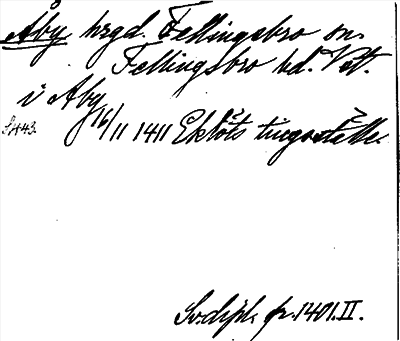 Åby hrgd. Fellingsbro sn.
Fellingsbro hd. Vstm.
i Aby
16/11 1411 Eklöts tingsställe
S. 443.
Sv. dipl. fr. 1401. II.